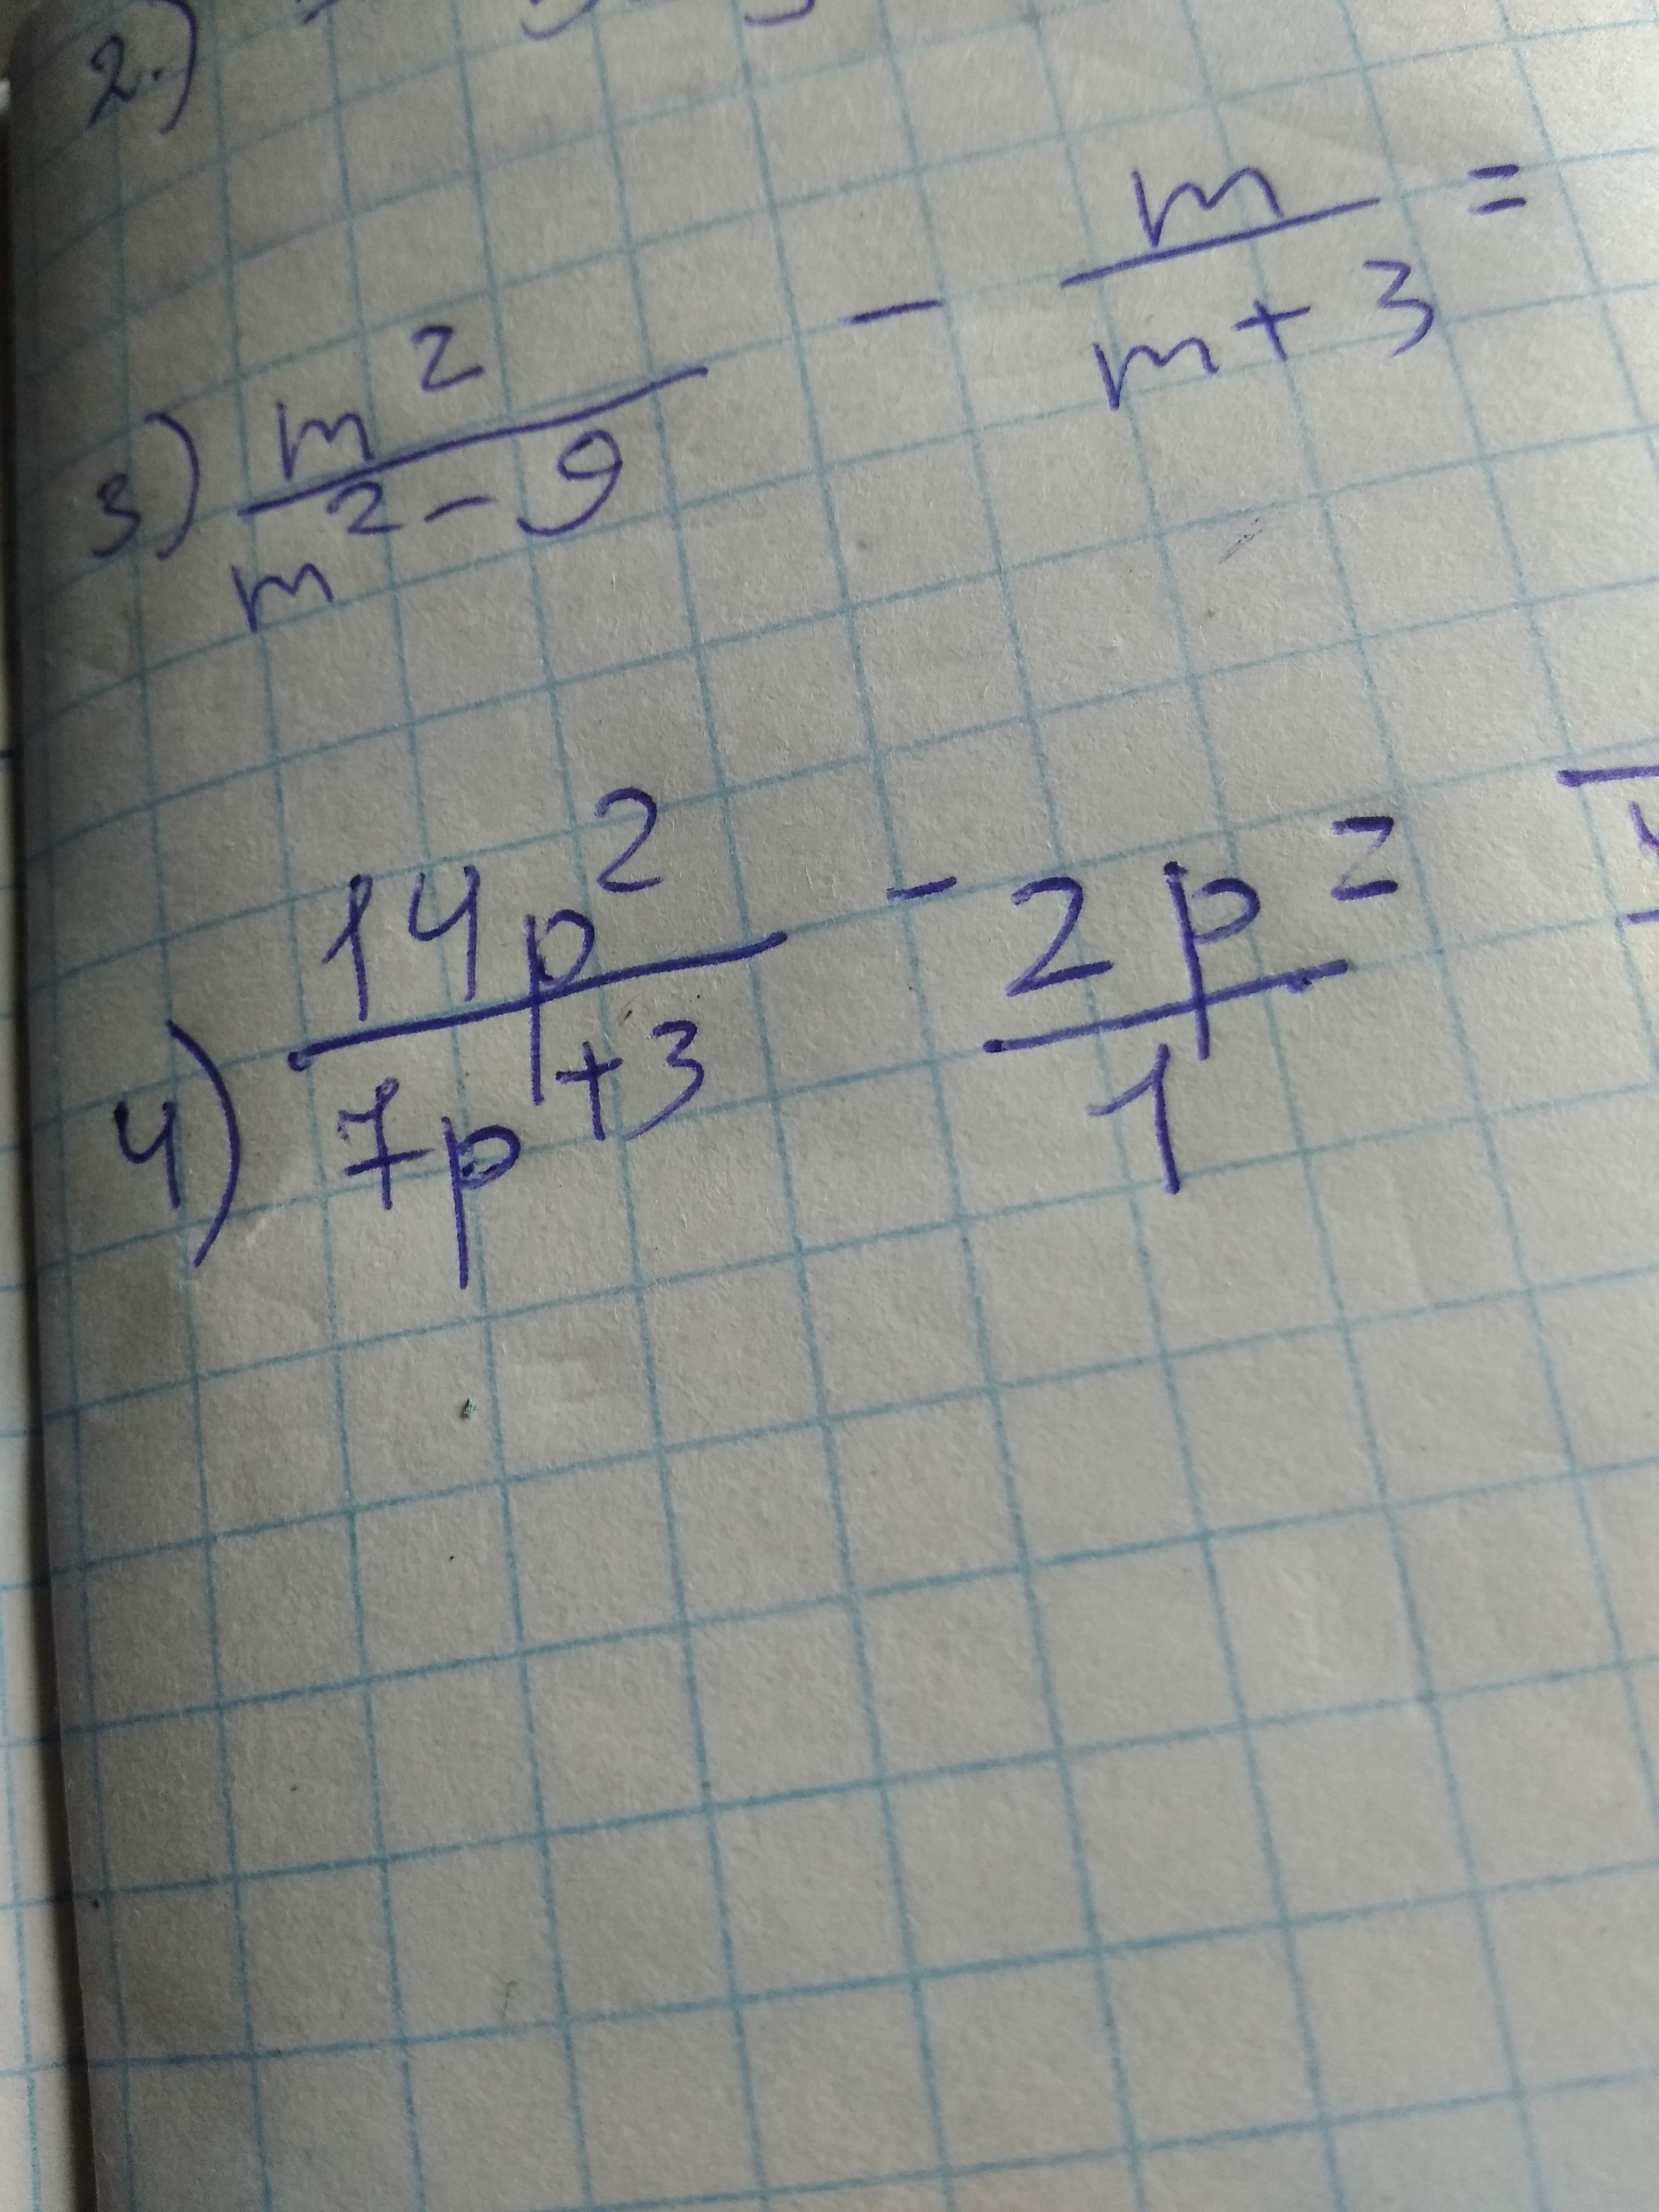 2.)
3) m²/(m² - 9) - m/(m + 3) =
4) 14p²/(7p + 3) - 2p/1 =